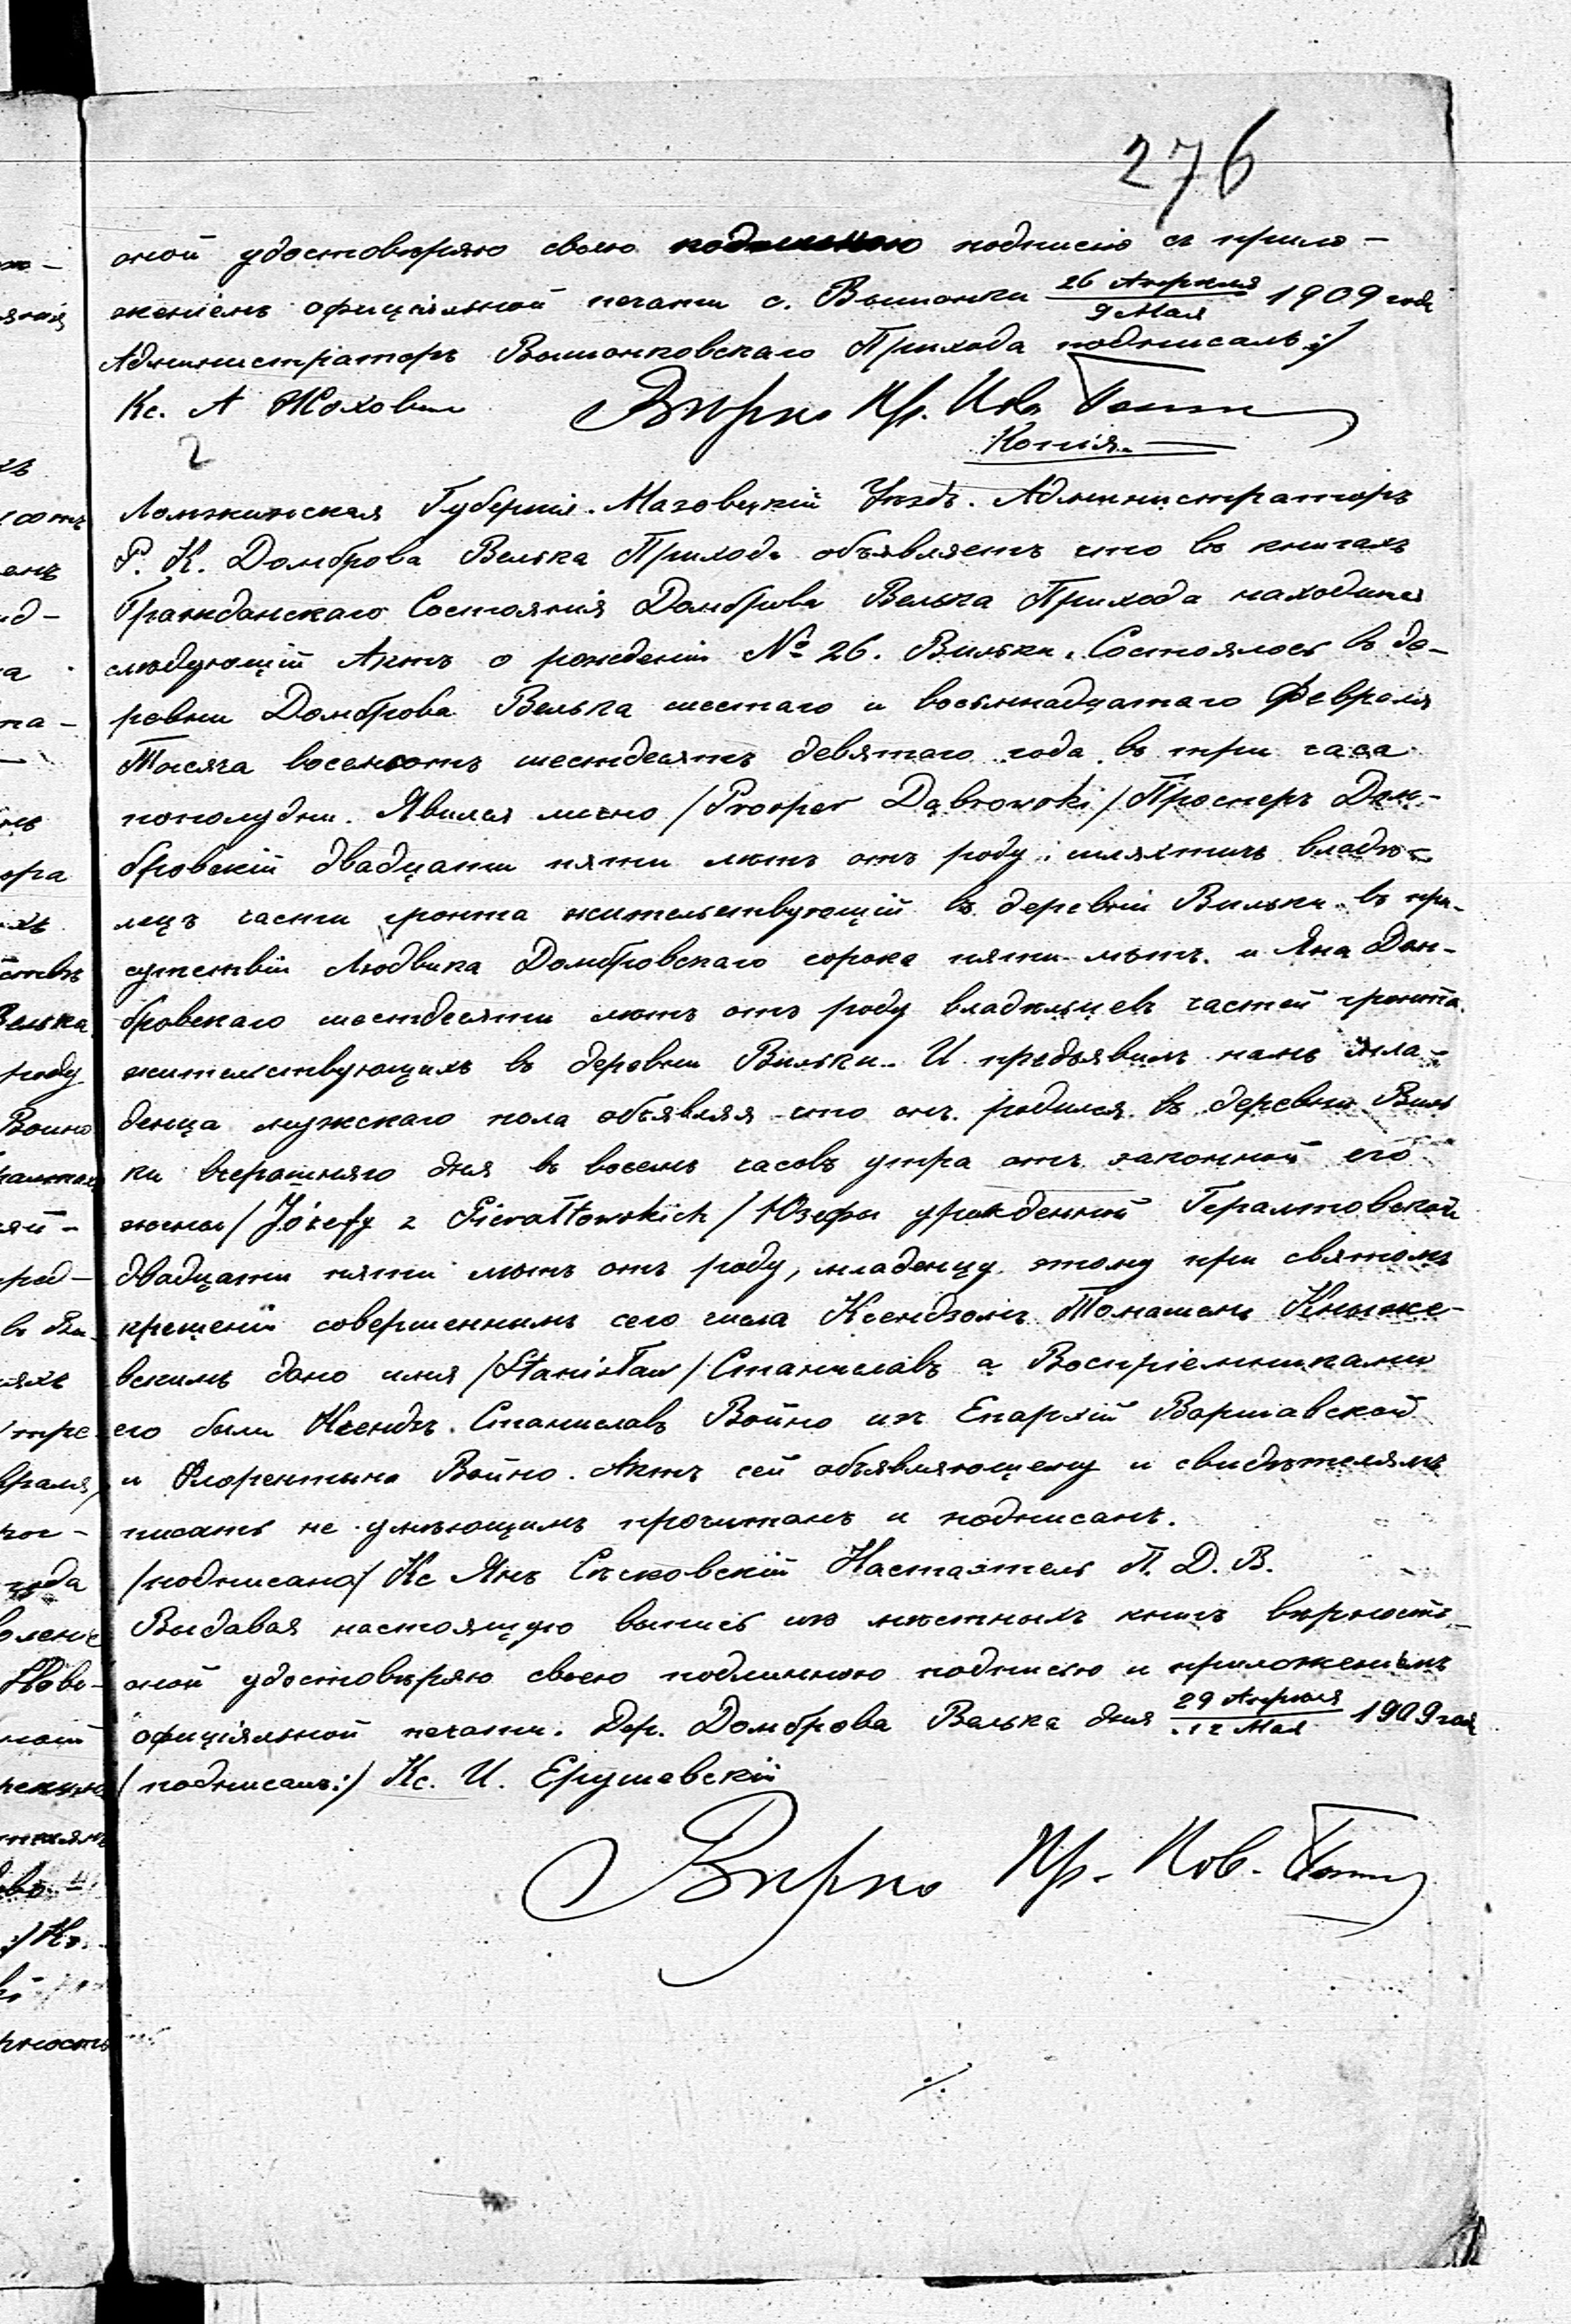 276
оной удостовѣряю своею подписію съ прило-
женіемъ офиціяльной печати с. Вышонки 26 Апрѣля / 9 Мая 1909 года
Администраторъ Вышонковскаго Прихода подписалъ:/
Кс. А Жохов
Вѣрно Кр.
2
Копія.
Ломжинская Губернія. Мазовецкій Уѣздъ. Администраторъ
Р. К. Домброва Велька Прихода объявляетъ что въ книгахъ
Гражданскаго Состоянія Домброва Велька Прихода находится
слѣдующій Актъ о рожденіи № 26. Вильки. Состоялось въ де-
ревни Домброва Велька шестаго и восьмнадцатаго Февраля
Тысяча восемьсотъ шестдесятъ девятаго года въ три часа
пополудни. Явился лично /Prosper Dąbrowski/ Просперъ Дом-
бровскій двадцати пяти лѣтъ отъ роду шляхтичъ владѣ-
лецъ части гронта жительствующій въ деревніи Вильки въ при-
сутствіи Людвика Домбровскаго сорока пяти лѣтъ и Яна Дом-
бровскаго шестдесяти лѣтъ отъ роду владѣльцевъ частей гронта
жительствующихъ въ деревни Вильки. И предъявилъ намъ мла-
денца мужскаго пола объявляя что онъ родился въ деревни Виль
ки вчерашняго дня въ восемъ часовъ утра отъ законной его
жены /Józefy z Gierałtowskich/ Юзефы урожденной Гералтовской
двадцати пяти лѣтъ отъ роду, младенцу этому при святомъ
крещеніи совершеннымъ сего числа Ксендзомъ Томашемъ
вскимъ дано имя /Stanisław/ Станиславъ а Воспріемниками
его были Ксендзъ Станиславъ Войно изъ Епархій Варшавской
и Флорентина Войно. Актъ сей объявляющему и свидѣтелямъ
писать не умѣющимъ прочитанъ и подписанъ.
/подписано/ Кс Янъ Настоятель П. Д. В.
Выдавая настоящую выпись изъ мѣстныхъ книгъ вѣрность
оной удостовѣряю своею подлинною подписью и приложеніемъ
офиціяльной печати. Дер. Домброва Велька дня 29 Апрѣля / 12 Мая 1909 года
/подписалъ:/ Кс. И. Ерушевскій
Вѣрно Кр.